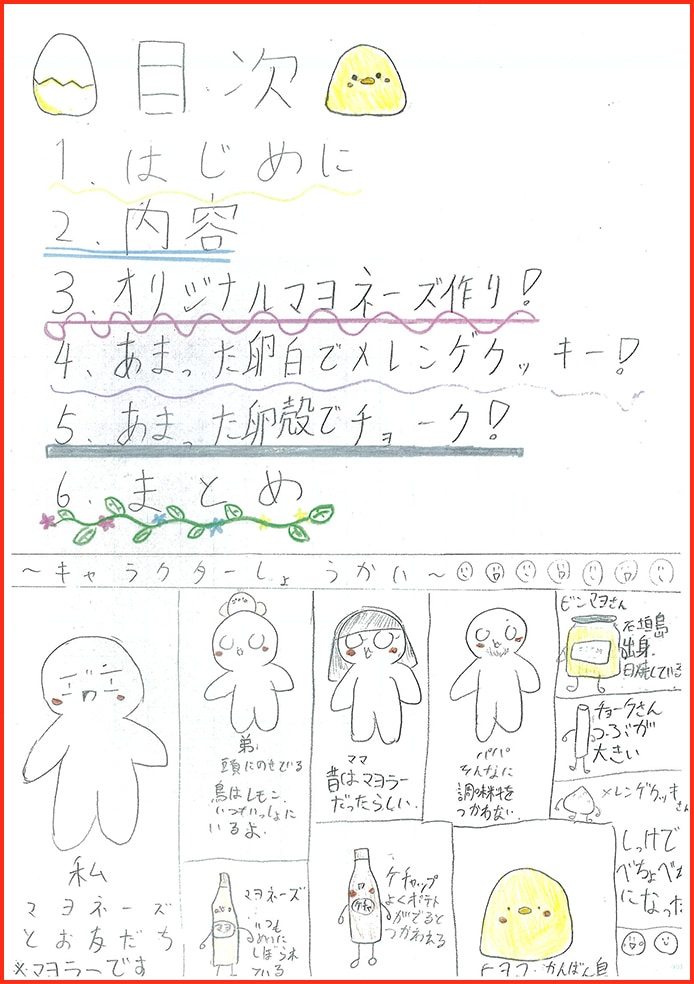 目次
1. はじめに
2. 内容
3. オリジナルマヨネーズ作り!
4. あまった卵白でメレンゲクッキー!
5. あまった卵殻でチョーク!
6. まとめ
～キャラクターしょうかい～
私
マヨネーズ
とお友だち
※マヨラーです
弟
頭にのせている
鳥はレモン.
いつもいっしょに
いるよ.
ママ
昔はマヨラー
だったらしい.
パパ
そんなに
調味料を
つかわない.
ビンマヨさん
石垣島
出身.
日焼している
チョークさん
つぶが
大きい
メレンゲクッキーさん
しっけで
べちょべちょ
になった
マヨネーズ
いつも
しぼられ
ている
マヨ
ケチャップ
よくポテト
がでると
つかわれる
ケチャ
かんばん鳥